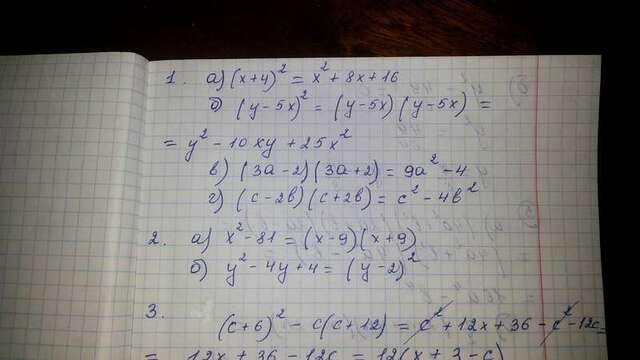 1. а) (x+4)² = x² + 8x + 16
б) (y-5x)² = (y-5x)(y-5x) =
= y² - 10xy + 25x²
в) (3a-2)(3a+2) = 9a² - 4
г) (c-2b)(c+2b) = c² - 4b²
2. а) x² - 81 = (x-9)(x+9)
б) y² - 4y + 4 = (y-2)²
3. (c+6)² - c(c+12) = c² + 12x + 36 - c² - 12c =
= 12x + 36 - 12c = 12(x+3-c)